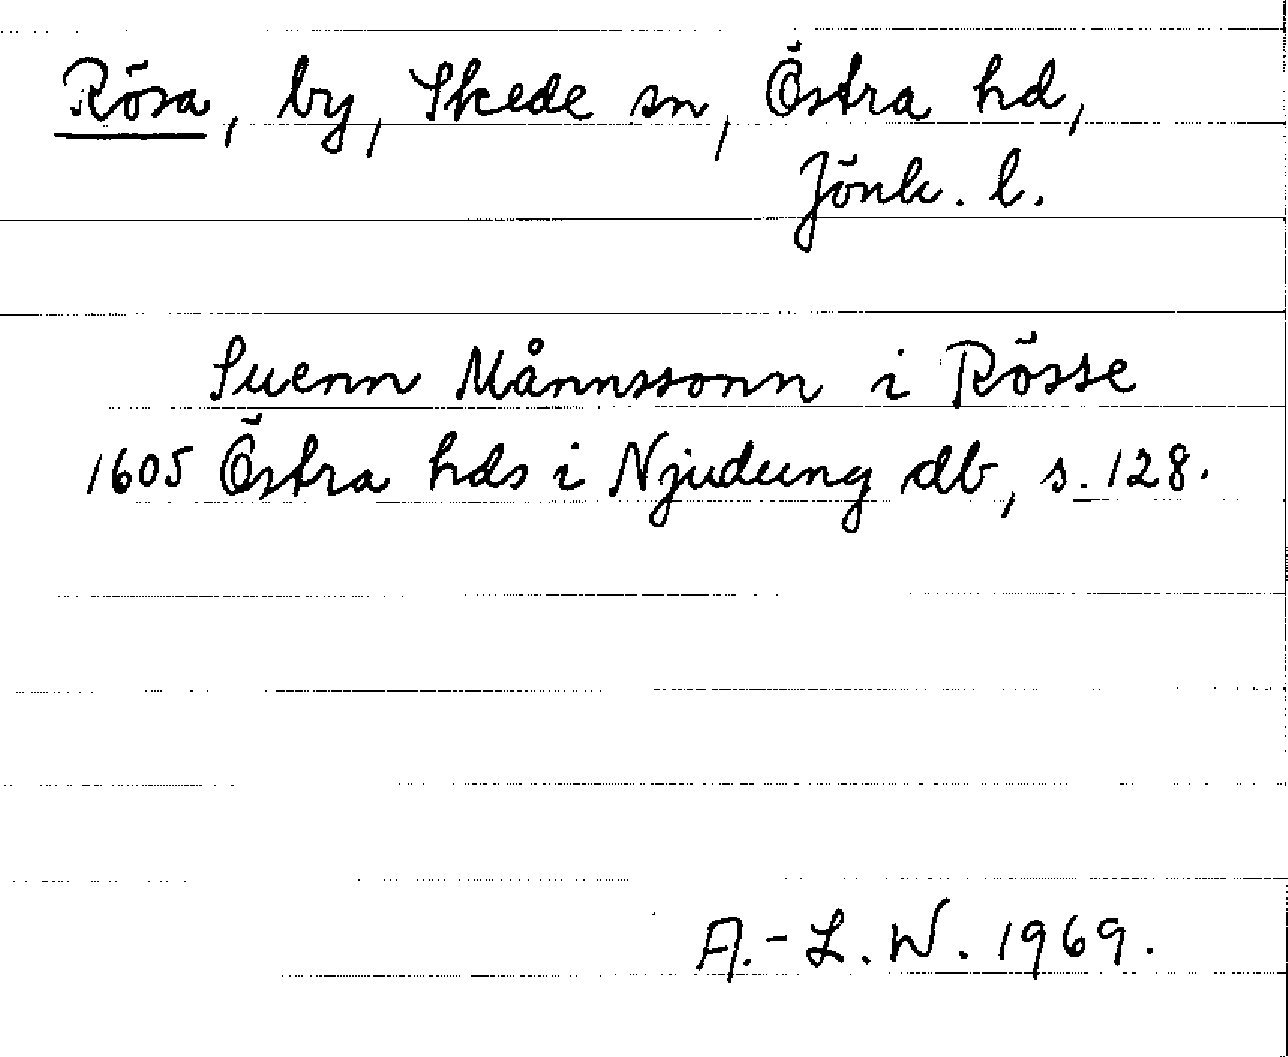 Rösa, by, Skede sn, Östra hd,
Jönk. l.
Suenn Månnssonn i Rösse
1605 Östra hds i Njudung db, s. 128.
A.-L.W. 1969.